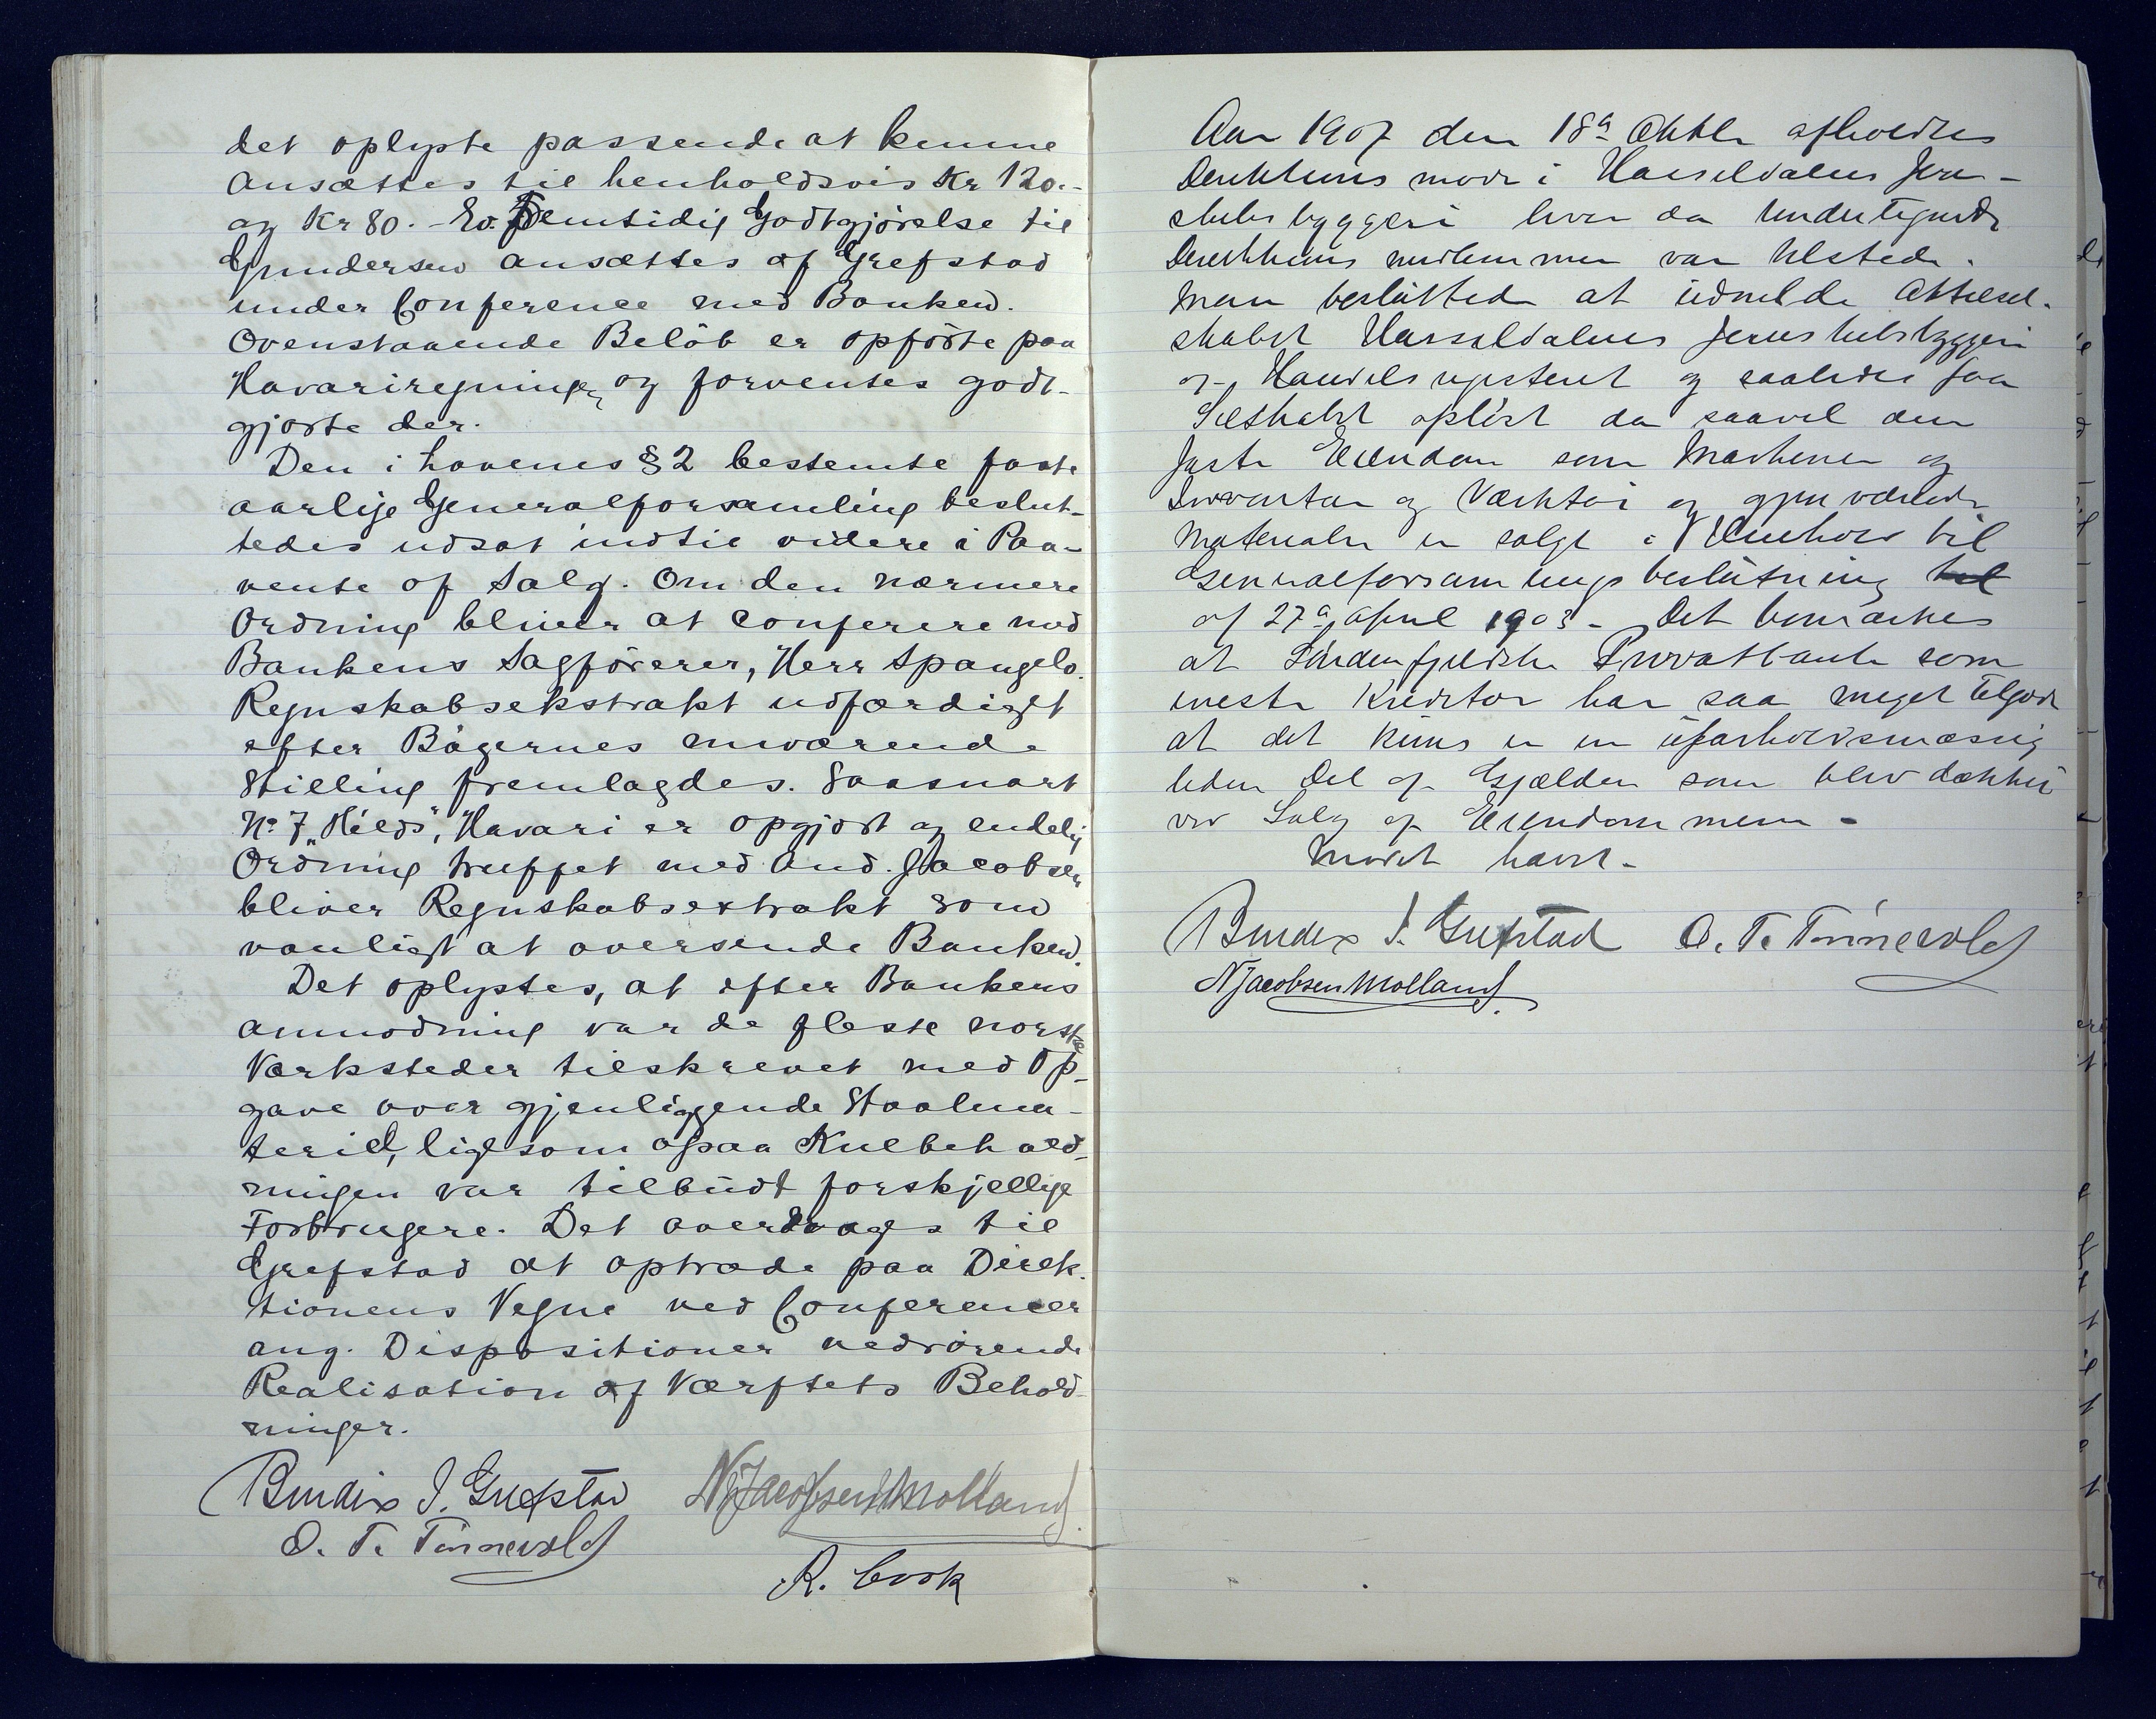 det oplyste passende at kunne
ansættes til henholdsvis Kr 120.-
og Kr 80.- Ev. Fremtidig Godtgjørelse til
Gundersen ansættes af Grefstad
under Conference med Banken.
Ovenstaaende Beløb er opførte paa
Havariregningen og forventes godt-
gjorte der.
Den i Lovenes § 2 bestemte faste
aarlige Generalforsamling beslut-
tedes udsat indtil videre i Paa-
vente af Salg. Om den nærmere
Ordning bliver at conferere med
Bankens Sagfører, Herr Spangelo.
Regnskabsekstrakt udfærdiget
efter Bøgernes nuværende
Stilling fremlagdes. Saasnart
No 7 „Hilds", Havari er opgjort og endelig
Ordning truffet med And. Jacobsen
bliver Regnskabsextrakt som
vanligt at oversende Banken.
Det oplystes, at efter Bankens
anmodning var de fleste norske
Værksteder tilskrevet med Op-
gave over gjenliggende Staalma-
teriel, ligesom ogsaa Kulbehold-
ningen var tilbudt forskjellige
Forbrugere. Det overdrages til
Grefstad at optræde paa Direk-
tionens Vegne ved Conferencer
ang. Dispositioner vedrørende
Realisation af Værftets Behold-
ninger.
Bendix J. Grefstad N Jacobsen Molland.
O. T. Tønnevold
R. Cook
Aar 1907 den 18de Oktbr afholdtes
Direktions møde i Hasseldalens Jern-
skibsbyggeri hvor da Undertegnede
Direktions medlemmer var tilstede.
Man besluttede at udmelde Aktiesel-
skabet Hasseldalens Jernskibsbyggeri
af Handelsregisteret og saaledes faa
Selskabet opløst da saavel den
faste Eiendom som Maskiner og
Inventar og Værktøi og gjenværende
Materialer er solgt i Henhold til
Generalforsamlings beslutning til
af 27de April 1903 - Det bemærkes
at Søndenfjeldske Privatbank som
meste Kreditor har saa meget tilgode
at det kuns er en uforholdsmæssig
liden Del af Gjælden som blev dækket
ved Salg af Eiendommen -
Mødet hævet -
Bendix J. Grefstad O. T. Tønnevold
N Jacobsen Molland.